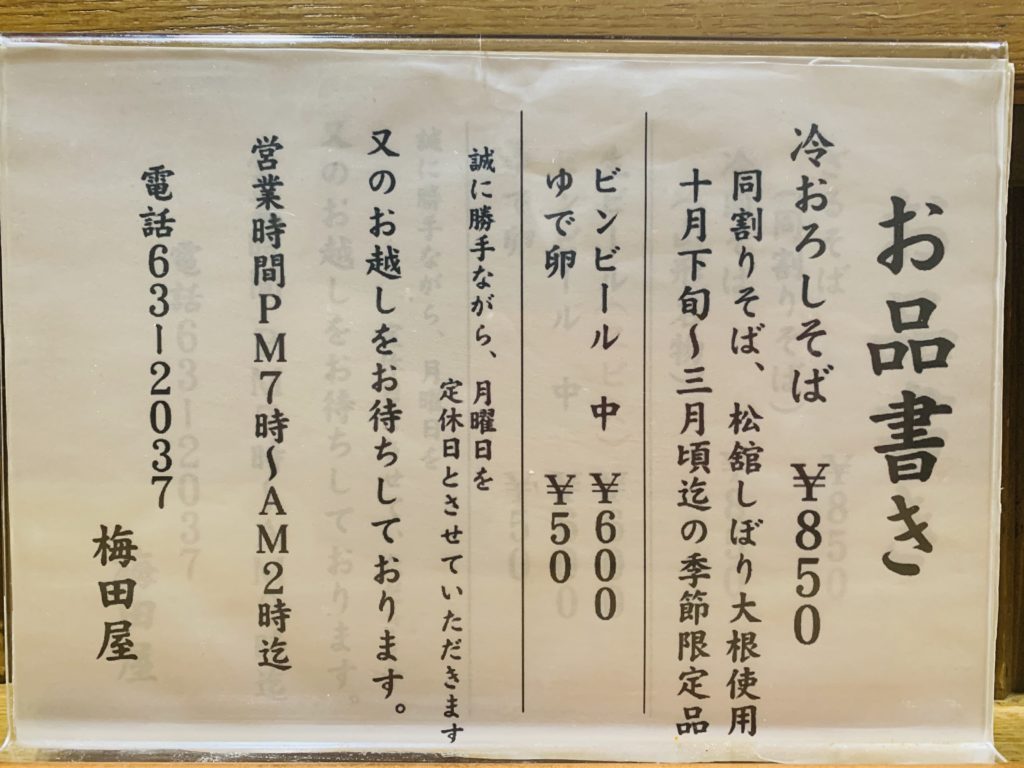 お品書き
冷おろしそば ¥850
同割りそば、松舘しぼり大根使用
十月下旬〜三月頃迄の季節限定品
ビンビール 中 ¥600
ゆで卵 ¥50
誠に勝手ながら、月曜日を
定休日とさせていただきます
又のお越しをお待ちしております。
営業時間PM7時〜AM2時迄
電話63-2037
梅田屋